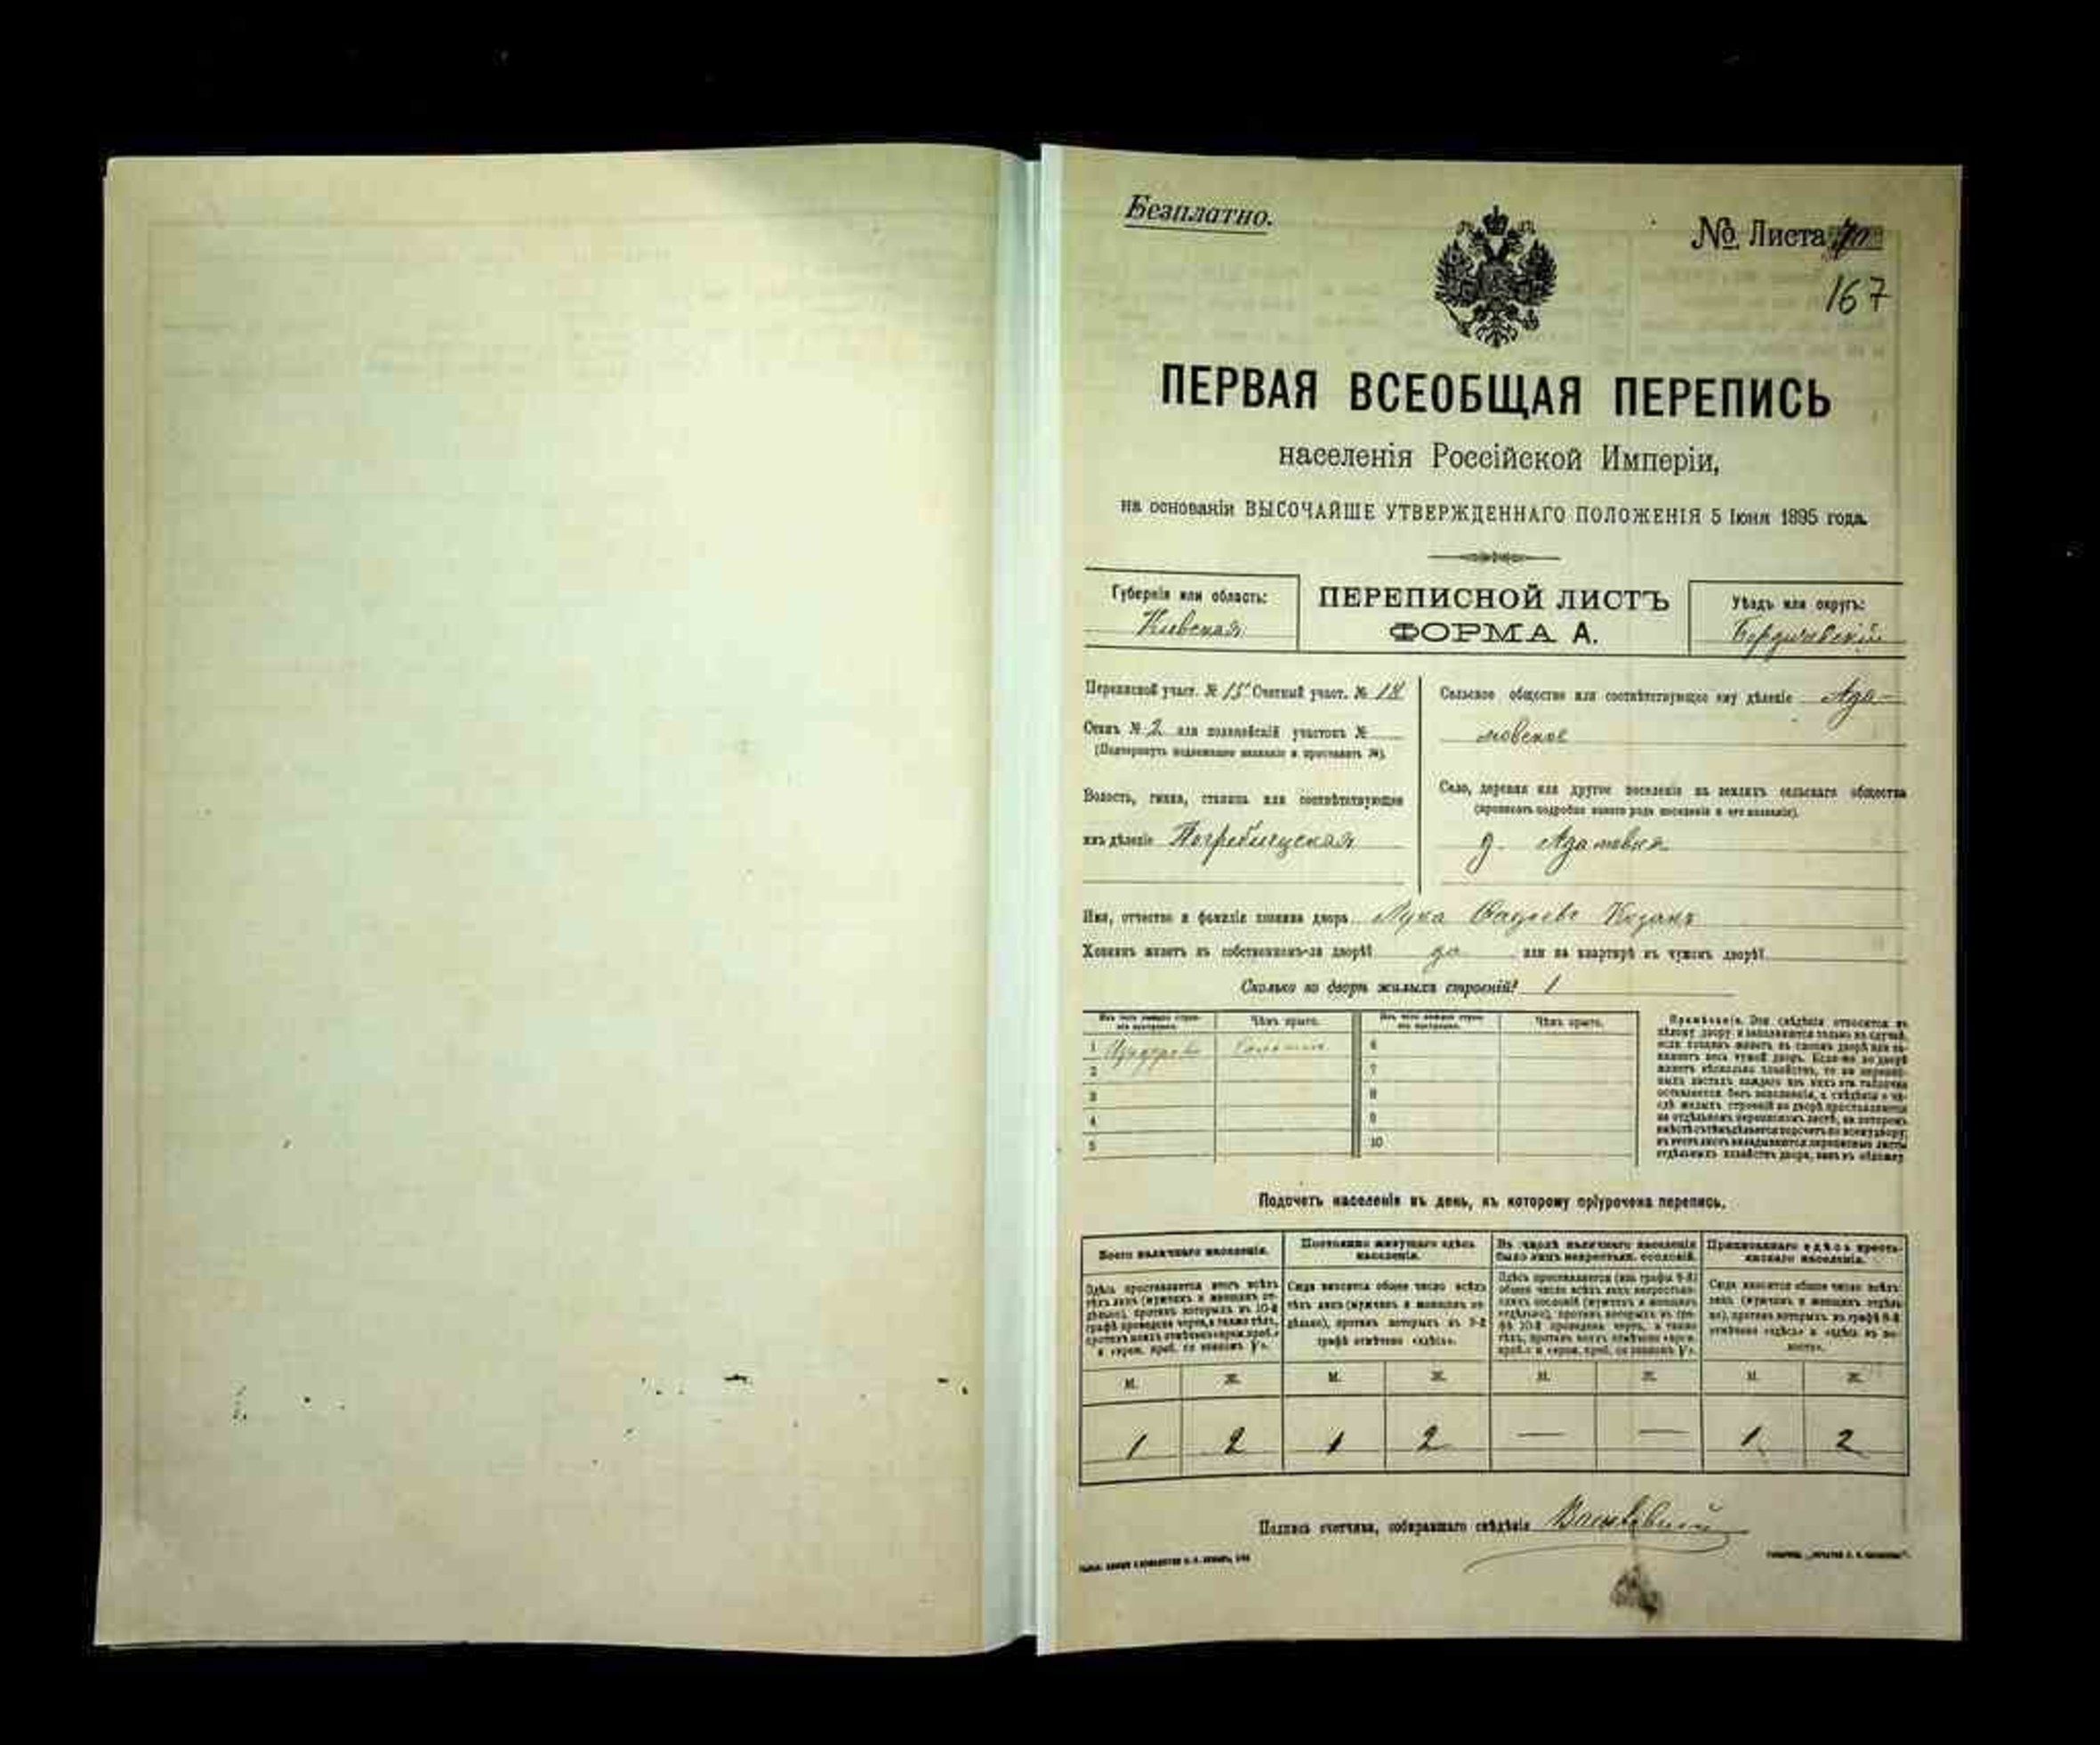 Безплатно.
№ Листа
167
ПЕРВАЯ ВСЕОБЩАЯ ПЕРЕПИСЬ
населенія Россійской Имперіи,
на основаніи ВЫСОЧАЙШЕ УТВЕРЖДЕННАГО ПОЛОЖЕНІЯ 5 Іюня 1895 года.
Губернія или область:
Кіевская
ПЕРЕПИСНОЙ ЛИСТЪ
ФОРМА А.
Уѣздъ или округъ:
Бердичевскій
Переписной участ. № 15 Счетный участ. № 18
Станъ № 2 или полицейскій участокъ №
(Подчеркнуть подлежащее названіе и проставить №).
Волость, гмина, станица или соотвѣтствующее
имъ дѣленіе Погребищская
Сельское общество или соотвѣтствующее ему дѣленіе Ада-
мовское
Село, деревня или другое поселеніе на земляхъ сельскаго общества
(прописать подробно какого рода поселеніе и его названіе).
д. Адамовка
Имя, отчество и фамилія хозяина двора Лука Фадеевъ Козакъ
Хозяинъ живетъ въ собственномъ-ли дворѣ? да или на квартирѣ въ чужомъ дворѣ?
Сколько во дворѣ жилыхъ строеній? 1
Изъ чего каждое строе-
ніе построено.
Чѣмъ крыто.
Изъ чего каждое строе-
ніе построено.
Чѣмъ крыто.
1 6
2 7
3 8
4 9
5 10
Примѣчаніе. Эти свѣдѣнія относятся къ
цѣлому двору и заполняются только въ случаѣ,
если хозяинъ живетъ въ своемъ дворѣ или за-
нимаетъ весь чужой дворъ. Если-же во дворѣ
живетъ нѣсколько хозяйствъ, то на перепис-
ныхъ листахъ каждаго изъ нихъ эта табличка
оставляется безъ заполненія, а свѣдѣнія о чи-
слѣ жилыхъ строеній во дворѣ проставляются
на отдѣльномъ переписномъ листѣ, на которомъ
вмѣстѣ съ тѣмъ дѣлается подсчетъ по всему двору;
въ этотъ листъ вкладываются переписные листы
отдѣльныхъ хозяйствъ двора, какъ въ обложку.
Подсчетъ населенія въ день, къ которому пріурочена перепись.
Всего наличнаго населенія.
Здѣсь проставляется итогъ всѣхъ
тѣхъ лицъ (мужчинъ и женщинъ от-
дѣльно), противъ которыхъ въ 10-й
графѣ проведена черта, а также тѣхъ,
противъ коихъ отмѣчено «врем. преб.»
и «врем. преб. со знакомъ V».
Постоянно живущаго здѣсь
населенія.
Сюда вносится общее число всѣхъ
тѣхъ лицъ (мужчинъ и женщинъ от-
дѣльно), противъ которыхъ въ 9-й
графѣ отмѣчено «здѣсь».
Въ числѣ наличнаго населенія
было лицъ некрестьян. сословій.
Здѣсь проставляется (изъ графы 6-й)
общее число всѣхъ лицъ некрестьян-
скихъ сословій (мужчинъ и женщинъ
отдѣльно), противъ которыхъ въ гра-
фѣ 10-й проведена черта, а также
тѣхъ, противъ коихъ отмѣчено «врем.
преб.» и «врем. преб. со знакомъ V».
Приписаннаго здѣсь кресть-
янскаго населенія.
Сюда вносится общее число всѣхъ
лицъ (мужчинъ и женщинъ отдѣль-
но), противъ которыхъ въ графѣ 8-й
отмѣчено «здѣсь» и «здѣсь въ во-
лости».
М. Ж. М. Ж. М. Ж. М. Ж.
1 2 1 2 — — 1 2
Подпись счетчика, собиравшаго свѣдѣнія